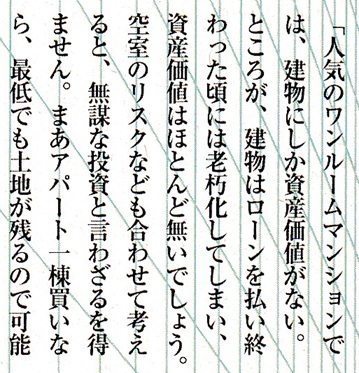 「人気のワンルームマンションで
は、建物にしか資産価値がない。
ところが、建物はローンを払い終
わった頃には老朽化してしまい、
資産価値はほとんど無いでしょう。
空室のリスクなども合わせて考え
ると、無謀な投資と言わざるを得
ません。まあアパート一棟買いな
ら、最低でも土地が残るので可能